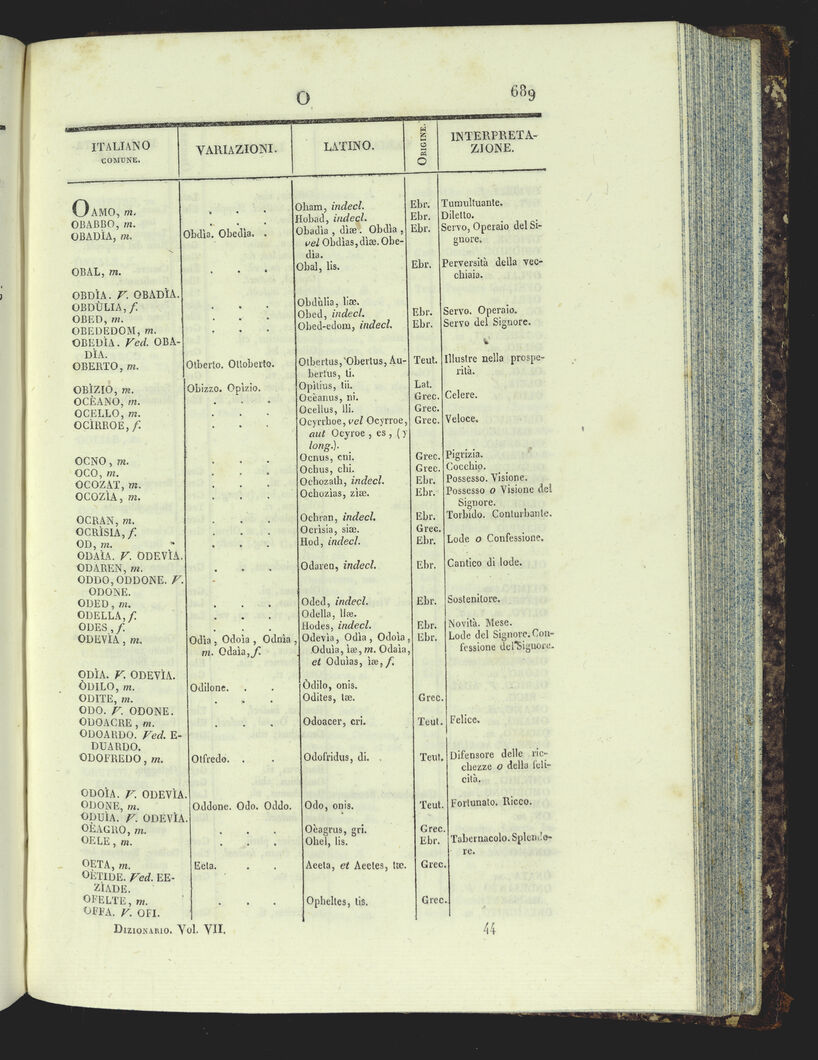 O 689
ITALIANO COMUNE. VARIAZIONI. LATINO. ORIGINE. INTERPRETAZIONE.
OAMO, m. . . . Oham, indecl. Ebr. Tumultuante.
OBABBO, m. . . . Hobad, indecl. Ebr. Diletto.
OBADÌA, m. Obdìa. Obedìa. . Obadìa, dìæ. Obdìa, Ebr. Servo, Operaio del Si-
vel Obdìas, dìæ. Obe- gnore.
dìa.
OBAL, m. . . . Obal, lis. Ebr. Perversità della vec-
chiaia.
OBDÌA. V. OBADÌA.
OBDÙLIA, f. . . . Obdùlia, liæ.
OBED, m. . . . Obed, indecl. Ebr. Servo. Operaio.
OBEDEDOM, m. . . . Obed-edom, indecl. Ebr. Servo del Signore.
OBEDÌA. Ved. OBA-
DÌA.
OBERTO, m. Otberto. Ottoberto. Otbertus, Obertus, Au- Teut. Illustre nella prospe-
bertus, ti. rità.
OBÌZIO, m. Obizzo. Opìzio. Opìtius, tii. Lat.
OCÈANO, m. . . . Ocèanus, ni. Grec. Celere.
OCELLO, m. . . . Ocellus, lli. Grec.
OCÌRROE, f. . . . Ocyrrhoe, vel Ocyrroe, Grec. Veloce.
aut Ocyroe, es, (y
long.).
OCNO, m. . . . Ocnus, cni. Grec. Pigrizia.
OCO, m. . . . Ochus, chi. Grec. Cocchio.
OCOZAT, m. . . . Ochozath, indecl. Ebr. Possesso. Visione.
OCOZÌA, m. . . . Ochozìas, zìæ. Ebr. Possesso o Visione del
Signore.
OCRAN, m. . . . Ochran, indecl. Ebr. Torbido. Conturbante.
OCRÌSIA, f. . . . Ocrìsia, siæ. Grec.
OD, m. . . . Hod, indecl. Ebr. Lode o Confessione.
ODAÌA. V. ODEVÌA.
ODAREN, m. . . . Odaren, indecl. Ebr. Cantico di lode.
ODDO, ODDONE. V.
ODONE.
ODED, m. . . . Oded, indecl. Ebr. Sostenitore.
ODELLA, f. . . . Odella, llæ.
ODES, f. . . . Hodes, indecl. Ebr. Novità. Mese.
ODEVÌA, m. Odìa, Odoìa, Oduìa, Odevìa, Odìa, Odoìa, Ebr. Lode del Signore. Con-
m. Odaìa, f. Oduìa, ìæ, m. Odaìa, fessione del Signore.
et Oduìas, ìæ, f.
ODÌA. V. ODEVÌA.
ÒDILO, m. Odilone. . . Òdilo, onis.
ODITE, m. . . . Odites, tæ. Grec.
ODO. V. ODONE.
ODOACRE, m. . . . Odoacer, cri. Teut. Felice.
ODOARDO. Ved. E-
DUARDO.
ODOFREDO, m. Otfredo. . . Odofridus, di. Teut. Difensore delle ric-
chezze o della feli-
cità.
ODOÌA. V. ODEVÌA.
ODONE, m. Oddone. Odo. Oddo. Odo, onis. Teut. Fortunato. Ricco.
ODUÌA. V. ODEVÌA.
OÈAGRO, m. . . . Oèagrus, gri. Grec.
OELE, m. . . . Ohel, lis. Ebr. Tabernacolo. Splendo-
re.
OETA, m. Eeta. . . Aeeta, et Aeetes, tæ. Grec.
OÈTIDE. Ved. EE-
ZÌADE.
OFELTE, m. . . . Opheltes, tis. Grec.
OFFA. V. OFI.
DIZIONARIO. Vol. VII. 44